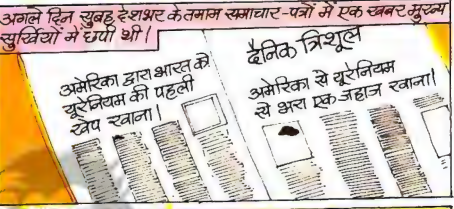 अगले दिन सुबह देशभर के तमाम समाचार-पत्रों में एक खबर मुख्य
सुर्खियों में छपी थी!
अमेरिका द्वारा भारत को
यूरेनियम की पहली
खेप रवाना!
दैनिक त्रिशूल
अमेरिका से यूरेनियम
से भरा एक जहाज रवाना!